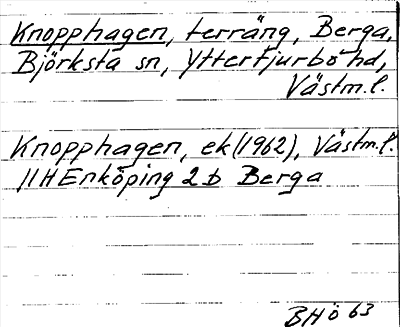 Knopphagen, terräng, Berga,
Björksta sn, Yttertjurbo hd,
Västm.l.
Knopphagen, ek (1962), Västm.l.
11HEnköping 2 b Berga
BHÖ 63